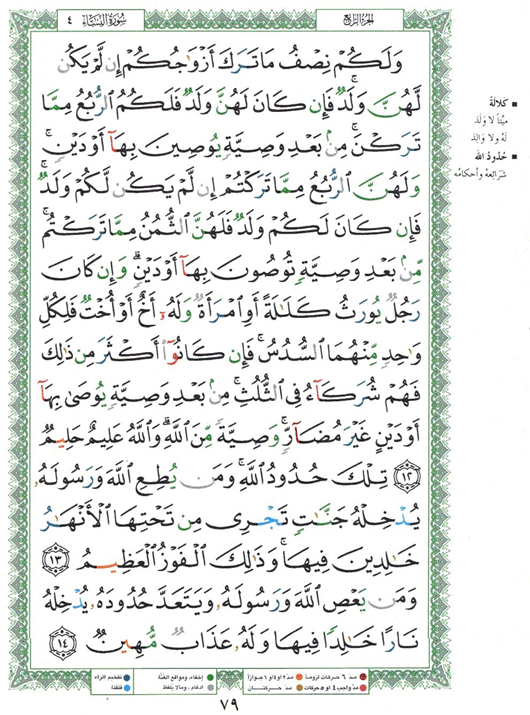 الجزء الرابع
سورة النساء ٤
وَلَكُمْ نِصْفُ مَا تَرَكَ أَزْوَٰجُكُمْ إِن لَّمْ يَكُن
لَّهُنَّ وَلَدٌ ۚ فَإِن كَانَ لَهُنَّ وَلَدٌ فَلَكُمُ ٱلرُّبُعُ مِمَّا
تَرَكْنَ ۚ مِنۢ بَعْدِ وَصِيَّةٍ يُوصِينَ بِهَآ أَوْ دَيْنٍ ۚ
وَلَهُنَّ ٱلرُّبُعُ مِمَّا تَرَكْتُمْ إِن لَّمْ يَكُن لَّكُمْ وَلَدٌ ۚ
فَإِن كَانَ لَكُمْ وَلَدٌ فَلَهُنَّ ٱلثُّمُنُ مِمَّا تَرَكْتُم ۚ
مِّنۢ بَعْدِ وَصِيَّةٍ تُوصُونَ بِهَآ أَوْ دَيْنٍ ۗ وَإِن كَانَ
رَجُلٌ يُورَثُ كَلَٰلَةً أَوِ ٱمْرَأَةٌ وَلَهُۥٓ أَخٌ أَوْ أُخْتٌ فَلِكُلِّ
وَٰحِدٍ مِّنْهُمَا ٱلسُّدُسُ ۚ فَإِن كَانُوٓا۟ أَكْثَرَ مِن ذَٰلِكَ
فَهُمْ شُرَكَآءُ فِى ٱلثُّلُثِ ۚ مِنۢ بَعْدِ وَصِيَّةٍ يُوصَىٰ بِهَآ
أَوْ دَيْنٍ غَيْرَ مُضَآرٍّ ۚ وَصِيَّةً مِّنَ ٱللَّهِ ۗ وَٱللَّهُ عَلِيمٌ حَلِيمٌ
١٢ تِلْكَ حُدُودُ ٱللَّهِ ۚ وَمَن يُطِعِ ٱللَّهَ وَرَسُولَهُۥ
يُدْخِلْهُ جَنَّٰتٍ تَجْرِى مِن تَحْتِهَا ٱلْأَنْهَٰرُ
خَٰلِدِينَ فِيهَا ۚ وَذَٰلِكَ ٱلْفَوْزُ ٱلْعَظِيمُ ١٣
وَمَن يَعْصِ ٱللَّهَ وَرَسُولَهُۥ وَيَتَعَدَّ حُدُودَهُۥ يُدْخِلْهُ
نَارًا خَٰلِدًا فِيهَا وَلَهُۥ عَذَابٌ مُّهِينٌ ١٤
■ كَلالَةً
ميّتاً لا وَلَد
لَهُ ولا وَالِد
■ حُدُودُ الله
شَرَائِعهُ وأحكامُه
مدّ ٦ حركات لزوماً
مدّ ٢ أو ٤ أو ٦ جوازاً
إخفاء، ومواقع الغُنَّة
تفخيم الراء
مدّ واجب ٤ أو ٥ حركات
مدّ حركتـان
ادغام، ومالا يُلفظ
قلقلة
٧٩